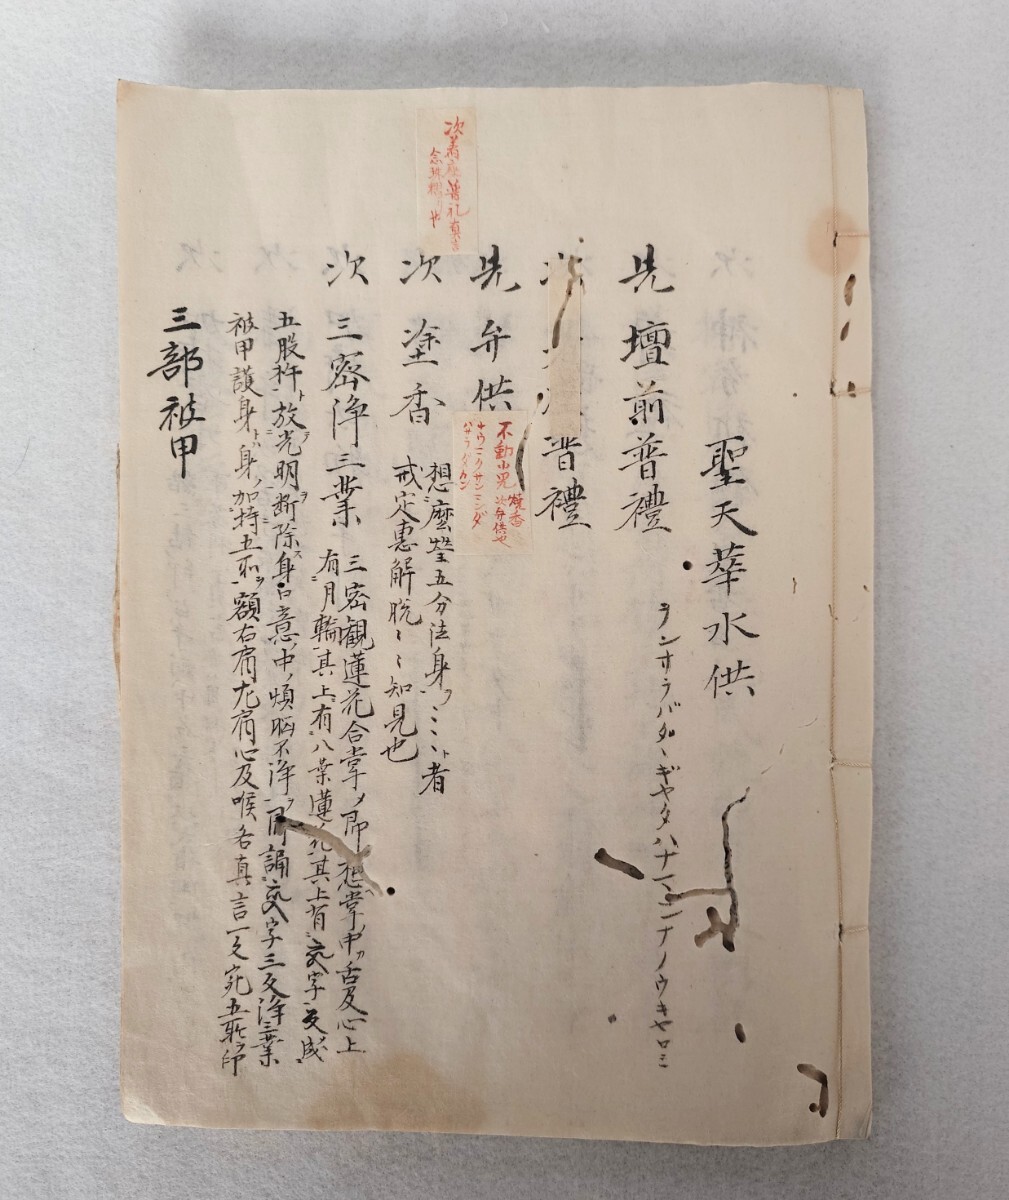 聖天華水供
先壇前普禮
ヲンサラバダヽギャタハナマンナノウキャロミ
普禮
先弁供
不動小呪 焼香
次弁供也
ナウマクサンマンダ
バサラダカン
次着座普礼真言
念珠摺也
次塗香
想磨瑩五分法身ヲミミト者
戒定惠解脱ヽ知見也
次三密浄三業
三密観蓮花合掌〆即想掌ノ中ヲ舌及心上
有月輪其上有八葉蓮花其上有字変成
五股杵ト放光明ヲ断除ス身口意ノ中ノ煩悩不浄ヲ即誦字三反浄三業
被甲護身ト身ノ加持五処ヲ額右肩左肩心及喉各真言一反宛五処ヲ印
三部被甲